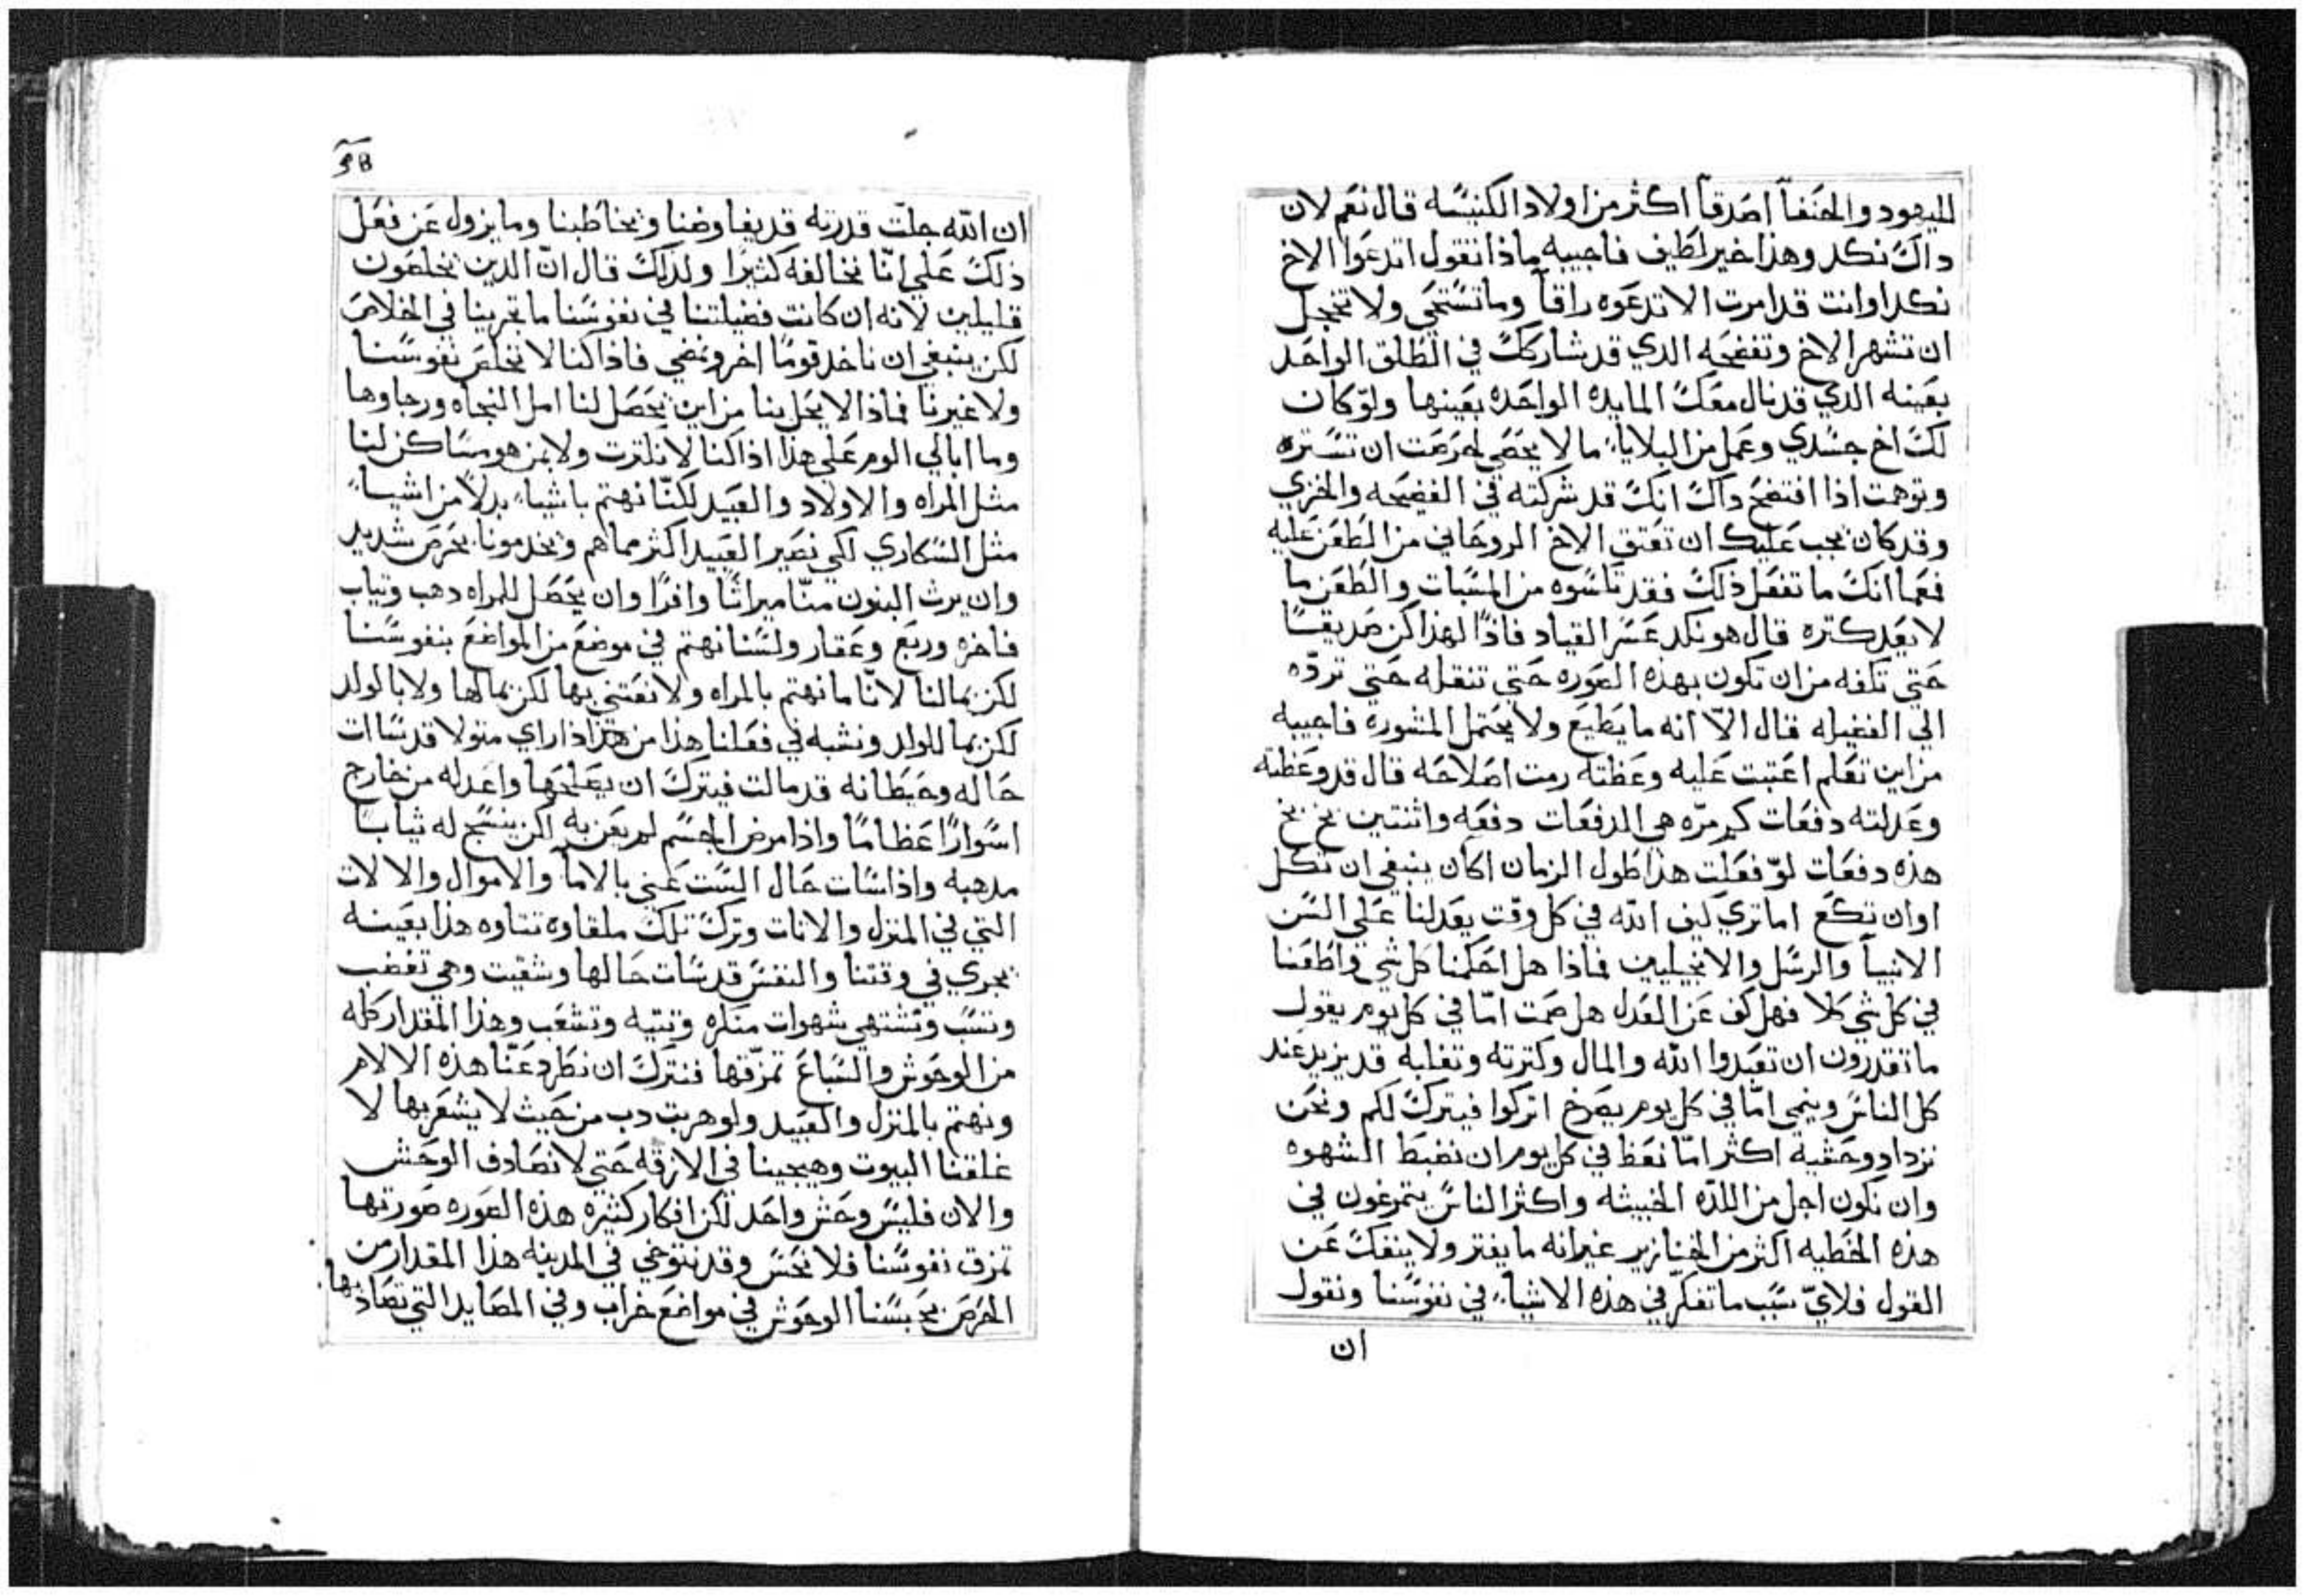 لليهود والحنفآ اصدقآ اكثر من اولاد الكنيسه قال نعم لان
داك نكد وهذا خير لطيف فاجيبه ماذا تقول اتدعوا الاخ
نكدا وانت قد امرت الا تدعوه راقآ وما تستحي ولا تخجل
ان تشهر الاخ وتفضحه الدي قد شاركك في الطلق الواحد
بعينه الدي قد نال معك المايده الواحده بعينها ولو كان
لك اخ جسدي وعمل من البلايا ما لا يحصي لحرصت ان تستره
وتوهمت اذا افتضح داك انك قد شركته في الفضيحه والخزي
وقد كان يجب عليك ان تعتق الاخ الروحاني من الطعن عليه
فعما انك ما تفعل ذلك فقد تاسوه من المسبات والطعن ما
لا يعد كتره قال هو نكد عسر القياد فاذًا لهذا كن صديقًا
حتي تكفه من ان تكون بهذه الصوره حتي تنقله حتي تردّه
الي الفضيله قال الاّ انه ما يطيع ولا يحتمل المشوره فاجيبه
من اين تعلم اعتبت عليه وعظته رمت اصلاحه قال قد وعظته
وعدلته دفعات كم مرّه هي الدفعات دفعه واثنتين بخ بخ
هذه دفعات لوّ فعلت هذا طول الزمان اكان ينبغي ان تكل
او ان تكع اما تري كيف الله في كل وقت يعدلنا علي السن
الانبيآ والرسل والانجيليين فماذا هل احكمنا كل شي واطعنا
في كل شي كلا فهل كف عن العدل هل صمت امّا في كل يوم يقول
ما تقدرون ان تعبدوا الله والمال وكترته وتغلبه قد يزيد عند
كل الناس وينمي امّا في كل يوم يصرخ اتركوا فيترك لكم ونحن
نزداد وحشيه اكثر امّا نعظ في كل يوم ان نضبط الشهوه
وان نكون اجل من اللذه الخبيثه واكثر الناس يتمرغون في
هذه الخطيه اكثر من الخنازير غير انه ما يفتر ولا ينفك عن
القول فلايّ سبب ما تفكر في هذه الاشياء في نفوسنا ونقول
ان
ان الله جلّت قدرته قد يفاوضنا ويخاطبنا وما يزول عن فعل
ذلك علي انّا نخالفه كثيرًا ولدلك قال انّ الدين يخلصون
قليلين لانه ان كانت فضيلتنا في نفوسنا ما تجزينا في الخلاص
لكن ينبغي ان ناخد قومًا اخر ونمضي فاذا كنا لا نخلص نفوسنا
ولا غيرنا فماذا لا يحل بنا من اين يحصل لنا امل النجاه ورجاوها
وما ابالي الوم علي هذا اذا كنا لا نلترت ولا بمن هو ساكن لنا
مثل المراه والاولاد والعبيد لكنّا نهتم باشياء بدلًا من اشياء
مثل السكاري لكي نصير العبيد اكثر مما هم ويخدمونا بحرص شديد
وان يرث البنون منّا ميراثًا وافرًا وان يحصل للمراه دهب وتياب
فاخره وربع وعقار ولسنا نهتم في موضع من المواضع بنفوسنا
لكن بمالنا لانّا ما نهتم بالمراه ولا نعتني بها لكن بمالها ولا بالولد
لكن بما للولد ونشبه في فعلنا هذا من اذا راي منزلا قد ساات
حاله وحيطانه قد مالت فيترك ان يصلحها واعد له من خارج
اسوارًا عظامًا واذا مرض الجسم لم يعن به لكن ينسج له ثيابا
مدهبه واذا ساات حال الست عني بالامآ والاموال والالات
التي في المنزل والاثات وترك تلك ملقاوه تتاوه هذا بعينه
يجري في وقتنا والنفس قد ساات حالها وشقيت وهي تغضب
وتسب وتشتهي شهوات منكره وتتيه وتشعب وهذا المقدار كله
من الوحوش والسباع تمزّقها فنترك ان نطرد عنّا هذه الالام
ونهتم بالمنزل والعبيد ولو هربت دب من حيث لا يشعر بها لا
غلقنا البيوت وهيجينا في الازقه حتي لا نصادف الوحش
والان فليس وحش واحد لكن افكار كثيره هذه الصوره صورتها
تمزق نفوسنا فلا نحس وقد نتوخي في المدينه هذا المقدار من
الحرص بحبسنا الوحوش في مواضع خراب وفي المصايد التي تصاد بها